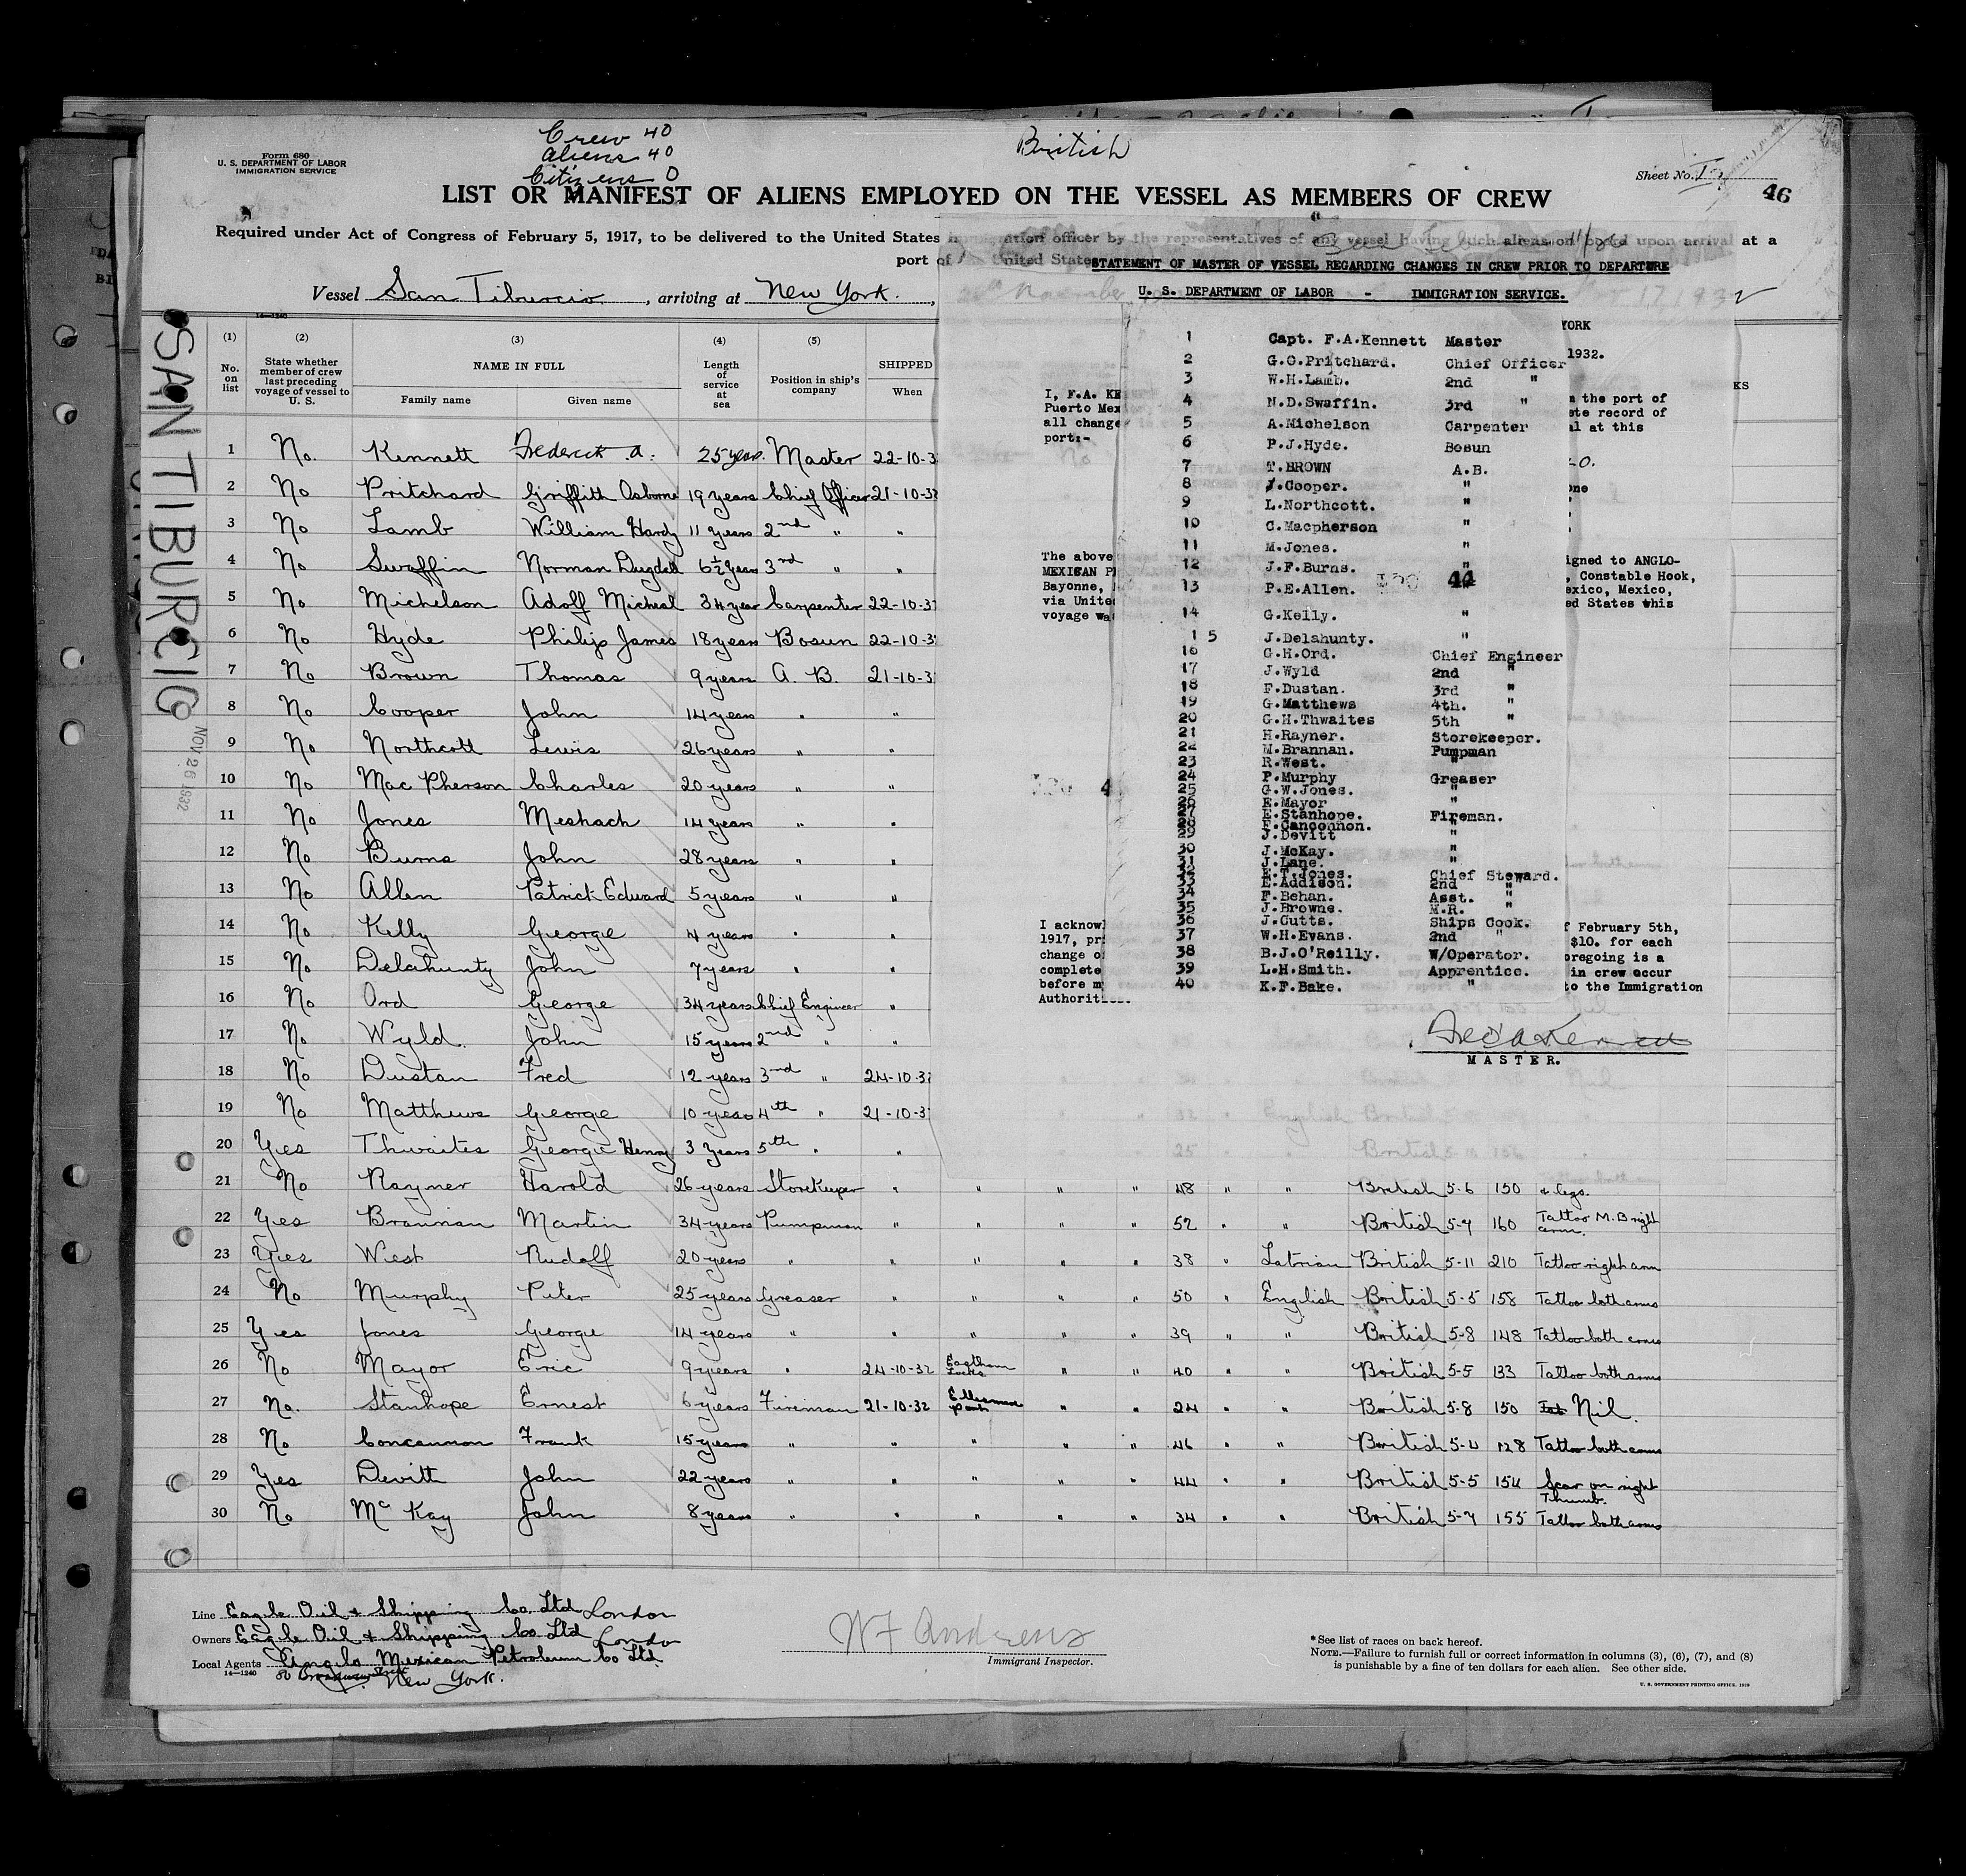 Crew 40
Aliens 40
Citizens 0
British
Form 680
U. S. DEPARTMENT OF LABOR
IMMIGRATION SERVICE
Sheet No. I
46
LIST OR MANIFEST OF ALIENS EMPLOYED ON THE VESSEL AS MEMBERS OF CREW
Required under Act of Congress of February 5, 1917, to be delivered to the United States immigration officer by the representatives of any vessel having such aliens on board upon arrival at a
port of United States
Vessel San Tiburcio, arriving at New York.,
SAN TIBURCIO
NOV 26 1932
(1) (2) (3) (4) (5)
No. on list State whether member of crew last preceding voyage of vessel to U. S. NAME IN FULL Length of service at sea Position in ship's company SHIPPED
Family name Given name When
1 No. Kennett Frederick A. 25 years. Master 22-10-3
2 No Pritchard Griffith Osborne 19 years Chief Officer 21-10-32
3 No Lamb William Hardy 11 years 2nd " "
4 No Swaffin Norman Dugdall 6½ years 3rd " "
5 No Michelson Adolf Micheal 34 year Carpenter 22-10-3
6 No Hyde Philip James 18 years Bosun 22-10-3
7 No Brown Thomas 9 years A. B. 21-10-3
8 No Cooper John 14 years " "
9 No Northcott Lewis 26 years " "
10 No MacPherson Charles 20 years " "
11 No Jones Meshach 14 years " "
12 No Burns John 28 years " "
13 No Allen Patrick Edward 5 years " "
14 No Kelly George 4 years " "
15 No Delahunty John 7 years " "
16 No Ord George 34 years Chief Engineer "
17 No Wyld. John 15 years 2nd " "
18 No Dustan Fred 12 years 3rd " 24-10-3
19 No Matthews George 10 years 4th " 21-10-3
20 Yes Thwaites George Henry 3 Years 5th " "
21 No Rayner Harold 26 years Storekeeper " " " " 48 " " British 5-6 150 & legs.
22 Yes Brannan Martin 34 years Pumpman " " " " 52 " " British 5-7 160 Tattoo M.B right arm.
23 Yes West Rudolf 20 years " " " " " 38 " Latvian British 5-11 210 Tattoo right arm
24 No Murphy Peter 25 years Greaser " " " " 50 " English British 5-5 158 Tattoo both arms
25 Yes Jones George 14 years " " " " " 39 " " British 5-8 148 Tattoo both arms
26 No Mayor Eric 9 years " 24-10-32 Eastham Locks " " 40 " " British 5-5 133 Tattoo both arms
27 No. Stanhope Ernest 6 years Fireman 21-10-32 Ellesmere Port " " 24 " " British 5-8 150 Nil.
28 No Concannon Frank 15 years " " " " " 46 " " British 5-4 128 Tattoo both arms
29 Yes Devitt John 22 years " " " " " 44 " " British 5-5 154 Scar on right Thumb.
30 No McKay John 8 years " " " " " 34 " " British 5-7 155 Tattoo both arms
STATEMENT OF MASTER OF VESSEL REGARDING CHANGES IN CREW PRIOR TO DEPARTURE
U. S. DEPARTMENT OF LABOR - IMMIGRATION SERVICE.
YORK
1932.
I, F.A. KE
Puerto Mex
all change
port:-
the port of
record of
at this
The above
MEXICAN P
Bayonne,
via Unite
voyage wa
igned to ANGLO-
, Constable Hook,
exico, Mexico,
ed States this
1 Capt. F.A.Kennett Master
2 G.O.Pritchard. Chief Officer
3 W.H.Lamb. 2nd "
4 N.D.Swaffin. 3rd "
5 A.Michelson Carpenter
6 P.J.Hyde. Bosun
7 T.BROWN A.B.
8 J.Cooper. "
9 L.Northcott. "
10 C.Macpherson "
11 M.Jones. "
12 J.F.Burns. "
13 P.E.Allen. 44
14 G.Kelly. "
15 J.Delahunty. "
16 G.H.Ord. Chief Engineer
17 J.Wyld 2nd "
18 F.Dustan. 3rd "
19 G.Matthews 4th. "
20 G.H.Thwaites 5th "
21 H.Rayner. Storekeeper.
22 M.Brannan. Pumpman
23 R.West. "
24 P.Murphy Greaser
25 G.W.Jones. "
26 E.Mayor "
27 E.Stanhope. Fireman.
28 F.Conconnon. "
29 J.Devitt "
30 J.McKay. "
31 J.Lane. "
32 E.T.Jones. Chief Steward.
33 E.Addison. 2nd "
34 F.Behan. Asst. "
35 J.Browne. M.R. "
36 J.Cutts. Ships Cook.
37 W.H.Evans. 2nd "
38 B.J.O'Reilly. W/Operator.
39 L.H.Smith. Apprentice.
40 K.F.Bake. "
I acknow
1917, pr
change o
complete
before m
Authorit
February 5th,
$10. for each
oregoing is a
in crew occur
to the Immigration
MASTER.
Line Eagle Oil & Shipping Co. Ltd London
Owners Eagle Oil & Shipping Co Ltd London
Local Agents Anglo Mexican Petroleum Co Ltd
14-1240
New York.
W F Andrews
Immigrant Inspector.
*See list of races on back hereof.
NOTE.—Failure to furnish full or correct information in columns (3), (6), (7), and (8)
is punishable by a fine of ten dollars for each alien. See other side.
U. S. GOVERNMENT PRINTING OFFICE.